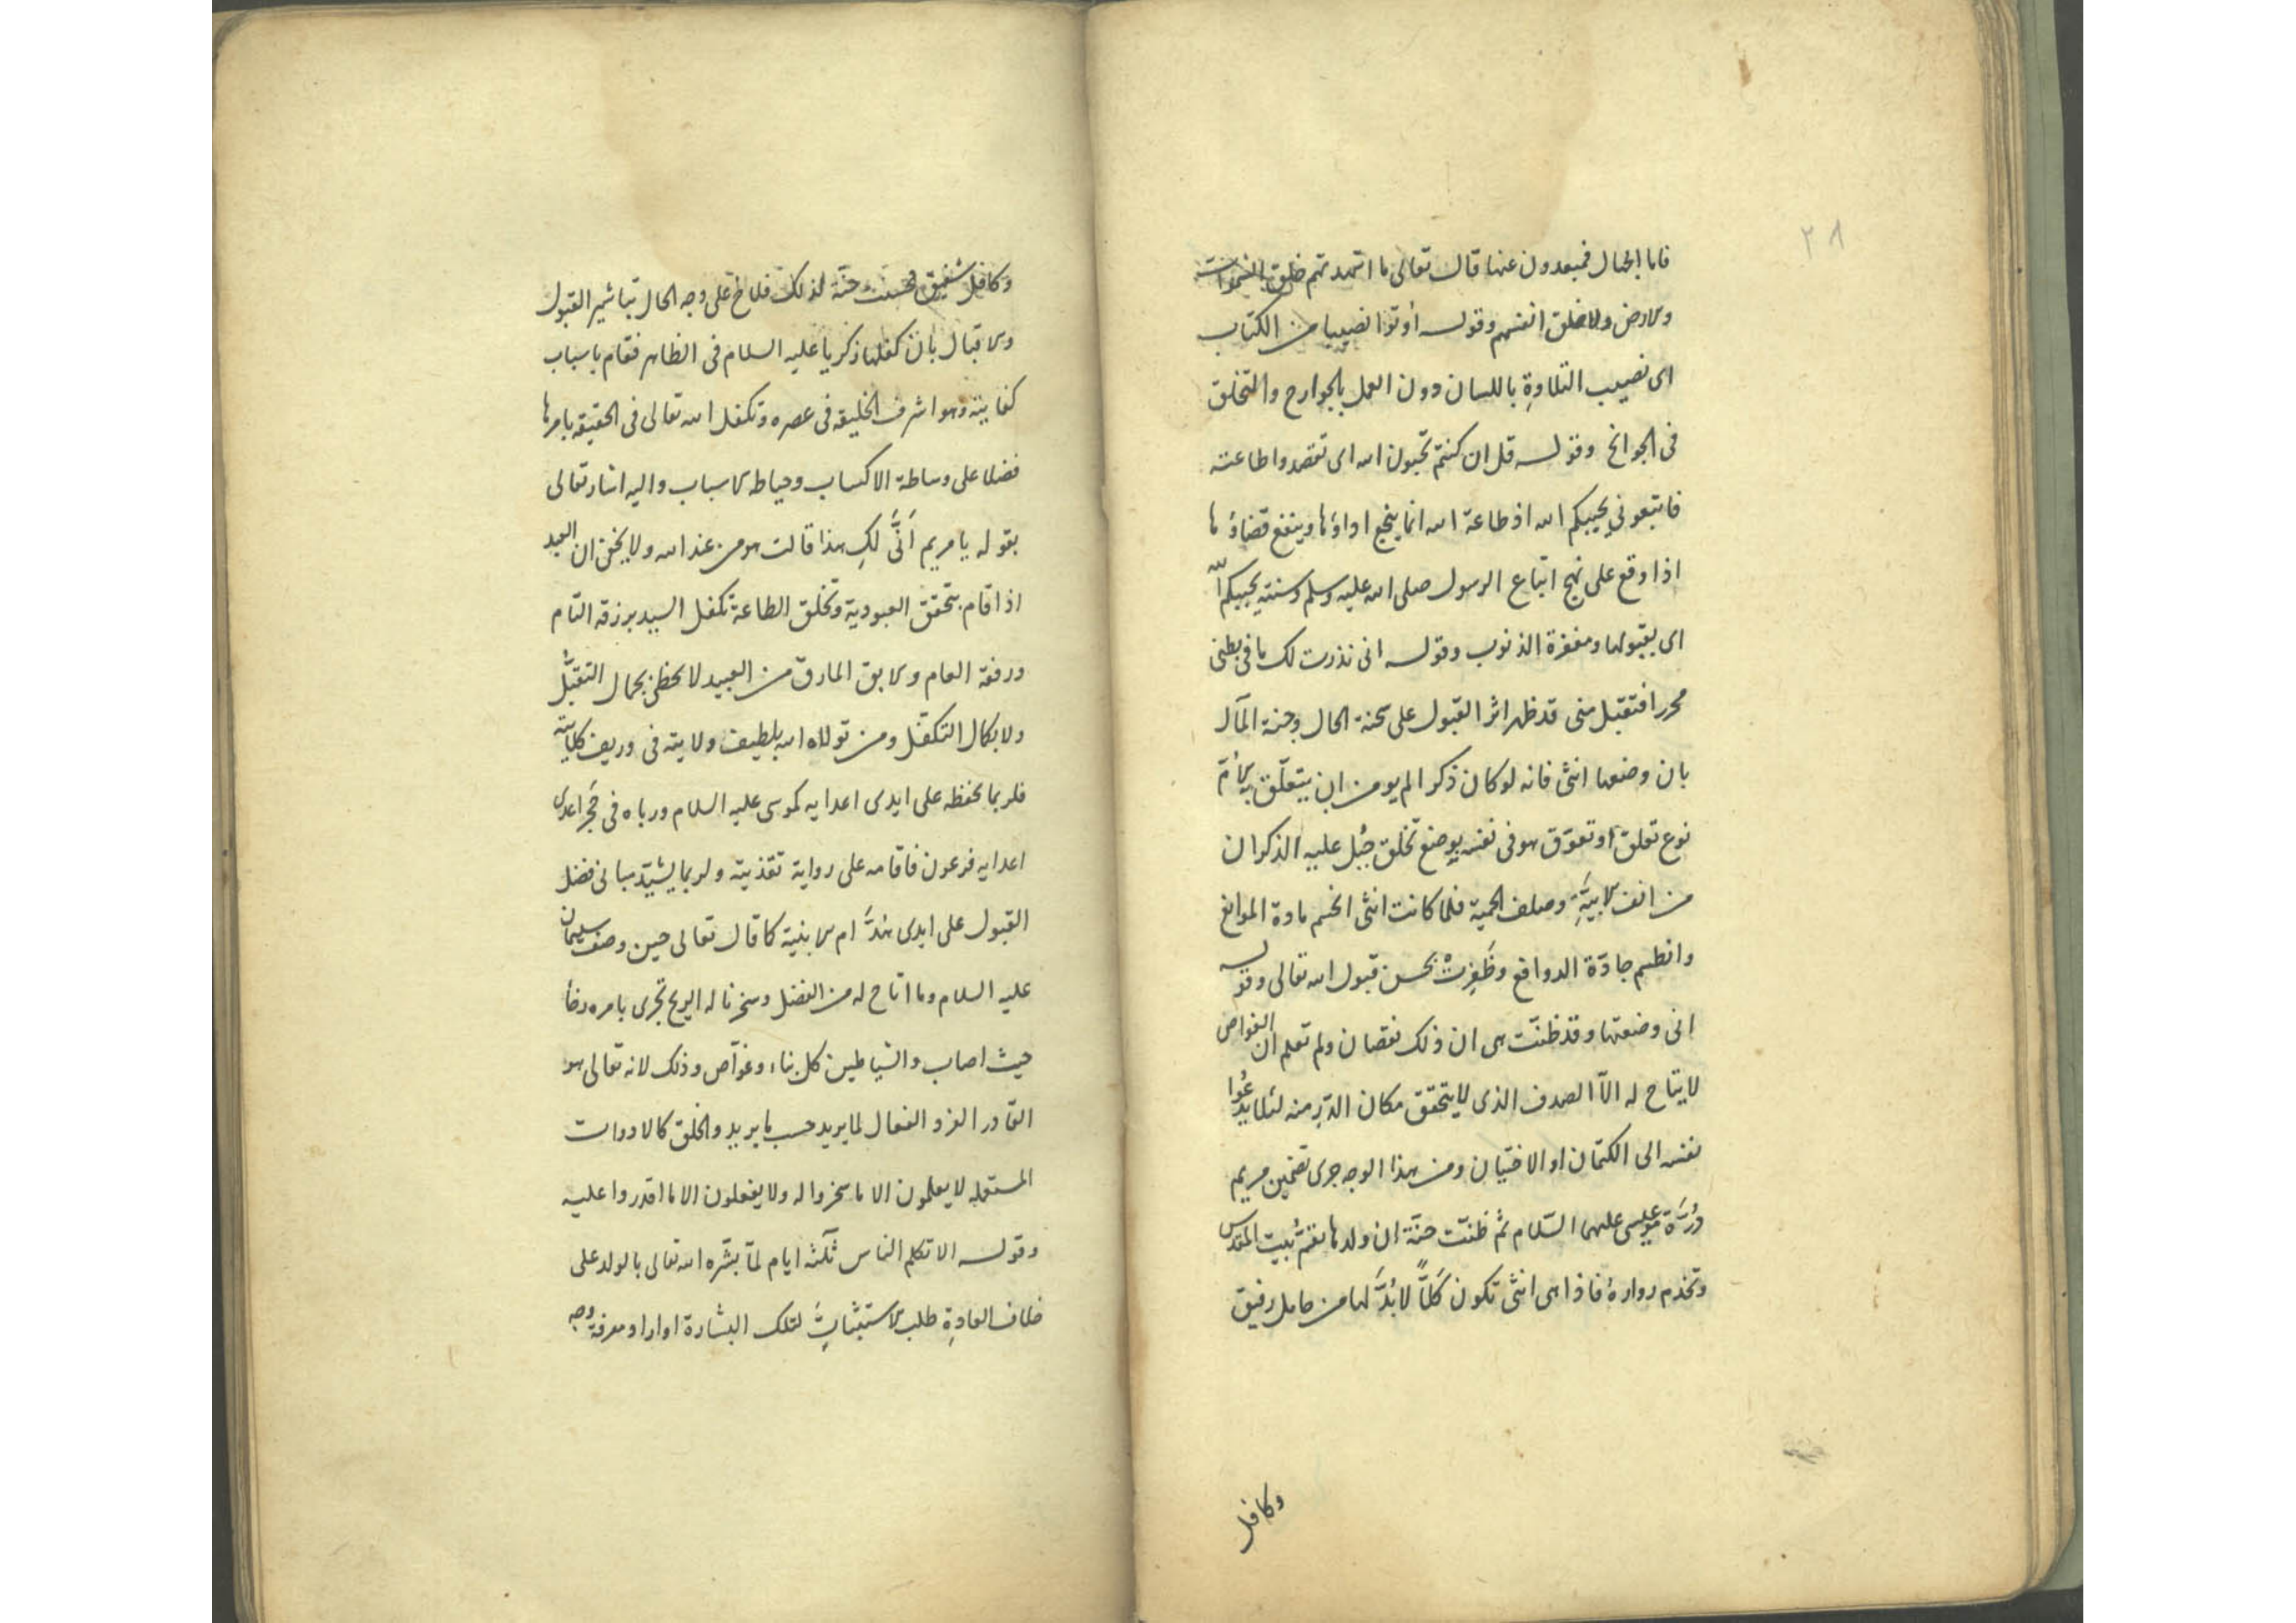 ٢٨
فاما الجهال فمبعدون عنها قال تعالى ما اشهدتهم خلق السموات
والارض ولا خلق انفسهم وقوله أوتوا نصيبا من الكتاب
اى نصيب التلاوةِ باللسان دون العمل بالجوارح والتخلق
فى الجوانح وقوله قل ان كنتم تحبون الله اى تقصدوا طاعته
فاتبعونى يحببكم الله اذ طاعة الله انما ينجع اداؤها وينفع قضاؤها
اذا وقع على نهج اتباع الرسول صلى الله عليه وسلم وسنته يحببكم الله
اى يقبولها ومغفرة الذنوب وقوله انى نذرت لك ما فى بطنى
محررا فتقبل منى قد ظهر اثر القبول على سحنة الحال وجنة المآل
بان وضعها انثى فانه لو كان ذكرا لم يومن ان يتعلّق بالأمّ
نوع تعلق أو تعوّق هو فى نفسه بوضع تخلق جُبل عليه الذكران
من انف الابيَّةِ وصلف الحمية فلما كانت انثى انحسم مادة الموانع
وانطسم جادّة الدوافع وظَفِرتْ بحسن قبول الله تعالى وقوله
انى وضعتها وقد ظنّت هى ان ذلك نقصان ولم تعلم ان الغواص
لا يتاح له الّا الصدف الذى لا يتحقق مكان الدّرِ منه لئلا يدعُوا
نفسه الى الكتمان او الاختيان ومن هذا الوجه جرى تضمين مريم
دُرَّة عيسى عليهما السّلام ثم ظنّت حنّة ان ولدها يقمُّ بيت المقدس
وتخدم زوارهُ فاذا هى انثى تكون كَلًّا لا بُدَّ لها من حامل رفيق
وكافل
وكافل شفيق فحسنت حنّة لذلك فلاح على وجه الحال تباشير القبول
والاقبال بان كفلها زكريا عليه السلام فى الظاهر فقام باسباب
كفايته وهو اشرف الخليقه فى عصره وتكفل الله تعالى فى الحقيقه بامرها
فضلا على وساطة الاكساب وحياطه الاسباب واليه اشار تعالى
بقوله يا مريم اَنَّى لكِ هذا قالت هو من عند الله ولا يخفى ان العبد
اذا قام بتحقق العبودية وتخلق الطاعة تكفل السيد برزقه التام
ورفقه العام والابق المارق من العبيد لا يحظى بجمال التقبُّل
ولا بكمال التكفّل ومن تولاه الله بلطيف ولايته فى وريف كلايته
فلربما يحفظه على ايدى اعدايه كموسى عليه السلام ورباه فى حَجر اعدى
اعدايه فرعون فاقامه على رواية تغذيته ولربما يشيّد مبانى فضل
القبول على ايدى هُدَّام الابنية كما قال تعالى حين وصف سليمان
عليه السلام وما اتاح له من الفضل وسخرنا له الريح تجرى بامره رخاً
حيث اصاب والشياطين كل بناء وغوّاص وذلك لانه تعالى هو
القادر الفرد الفعال لما يريد حسب ما يريد والخلق كالادوات
المستعمله لا يعلمون الا ما سخروا له ولا يفعلون الا ما اقدروا عليه
وقوله الا تكلم الناس ثلثه ايام لمّا بشّره الله تعالى بالولد على
خلاف العادةِ طلب الاستثباتَِ لتلك البشارة او اراد معرفة وجه